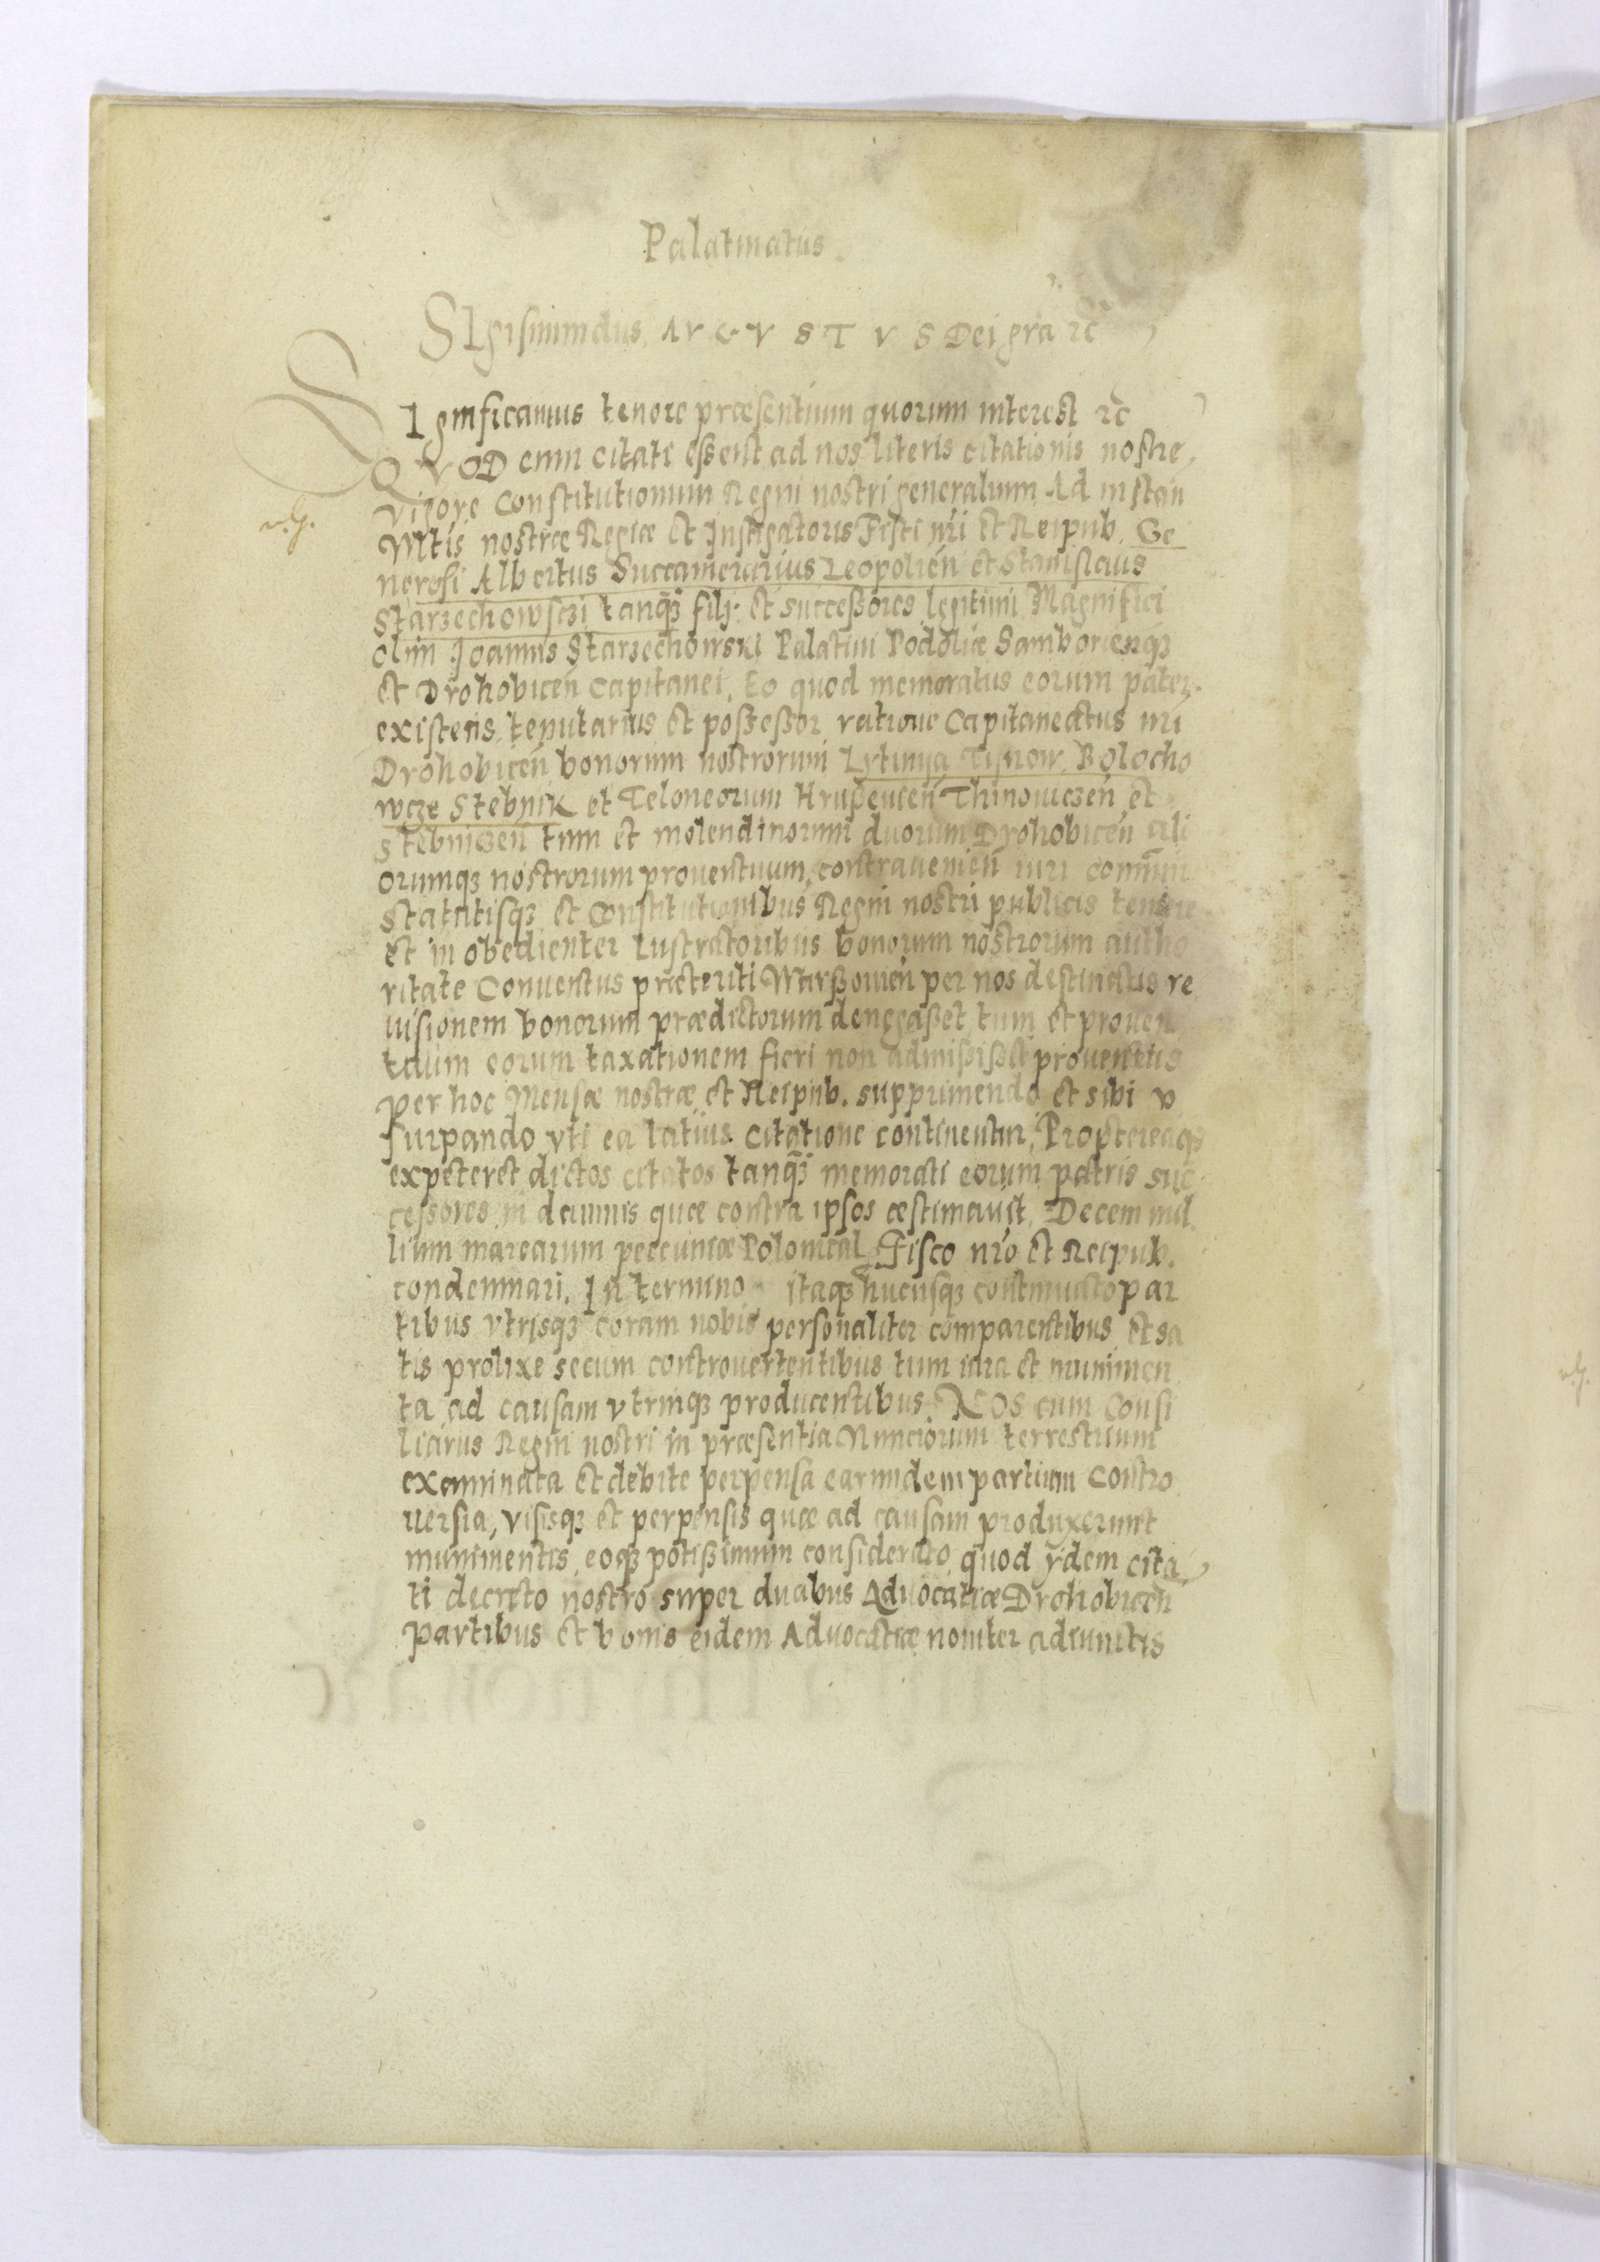 Palatinatus
SIgismundus AVGVSTVS Dei gra rc
SIgnificamus tenore præsentium quorum interest rc
QVOD cum citati essent ad nos literis citationis nostre,
vigore Constitutionum Regni nostri generalium Ad instan
Mtis nostræ Regiæ et Instigatoris Fisci nri et Reipub. Ge
nerosi Albertus Succamerarius Leopolien et Stanislaus
Starzechowsczi tanq3 filij et successores legitimi Magnifici
olim Ioannis Starzechowski Palatini Podoliæ Samborienq3
et Drohobicen Capitanei, Eo quod memoratus eorum pater
existens tenutarius et possessor ratione Capitaneatus nri
Drohobicen bonorum nostrorum Lytinya Tisnow Bolocho
wcze Stebnik et Teloneorum Thinowiczen et
Stebniczen tum et molendinorum duorum Drohobicen ali
orumq3 nostrorum prouentuum, contrauenien iuri commun
Statutisq3 et Constitutionibus Regni nostri publicis
et in obedienter Lustratoribus bonorum nostrorum autho
ritate Conuentus præteriti Warssouien per nos destinatus re
uisionem bonorum prædictorum denegasset tum et prouen
tuum eorum taxationem fieri non admisisset prouentus
per hoc Mensæ nostræ et Reipub. supprimendo et sibi v
surpando vti ea latius citatione continentur, Proptereaq3
expeteret dictos citatos tanq3 memorati eorum patris suc
cessores in damnis quæ contra ipsos æstimauit, Decem mil
lium marcarum peccuniæ Polonical Fisco nro et Reipub.
condemnari. In termino itaq3 hucusq3 continuato par
tibus vtrisq3 coram nobis personaliter comparentibus et sa
tis prolixe secum controuertentibus tum iura et munimen
ta ad causam vtrinq3 producentibus. NOS cum Consi
liarijs Regni nostri in præsentia Nunciorum terrestrium
examinata et debite perpensa earundem partium Contro
uersia, visisq3 et perpensis quæ ad causam produxerunt
munimentis, eoq3 potissimum considerato quod ijdem cita
ti decreto nostro super duabus Aduocatiæ Drohobicen
partibus et bonis eidem Aduocatiæ nouiter adiunctis